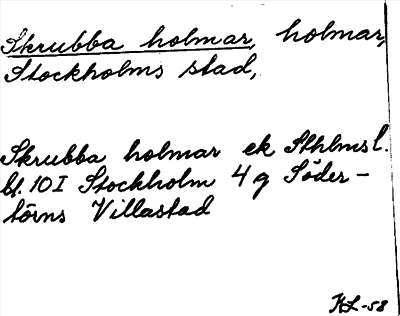 Skrubba holmar, holmar,
Stockholms stad,
Skrubba holmar ek Sthlmsl.
bl. 10 I Stockholm 4 g Söder-
törns Villastad
KL-58